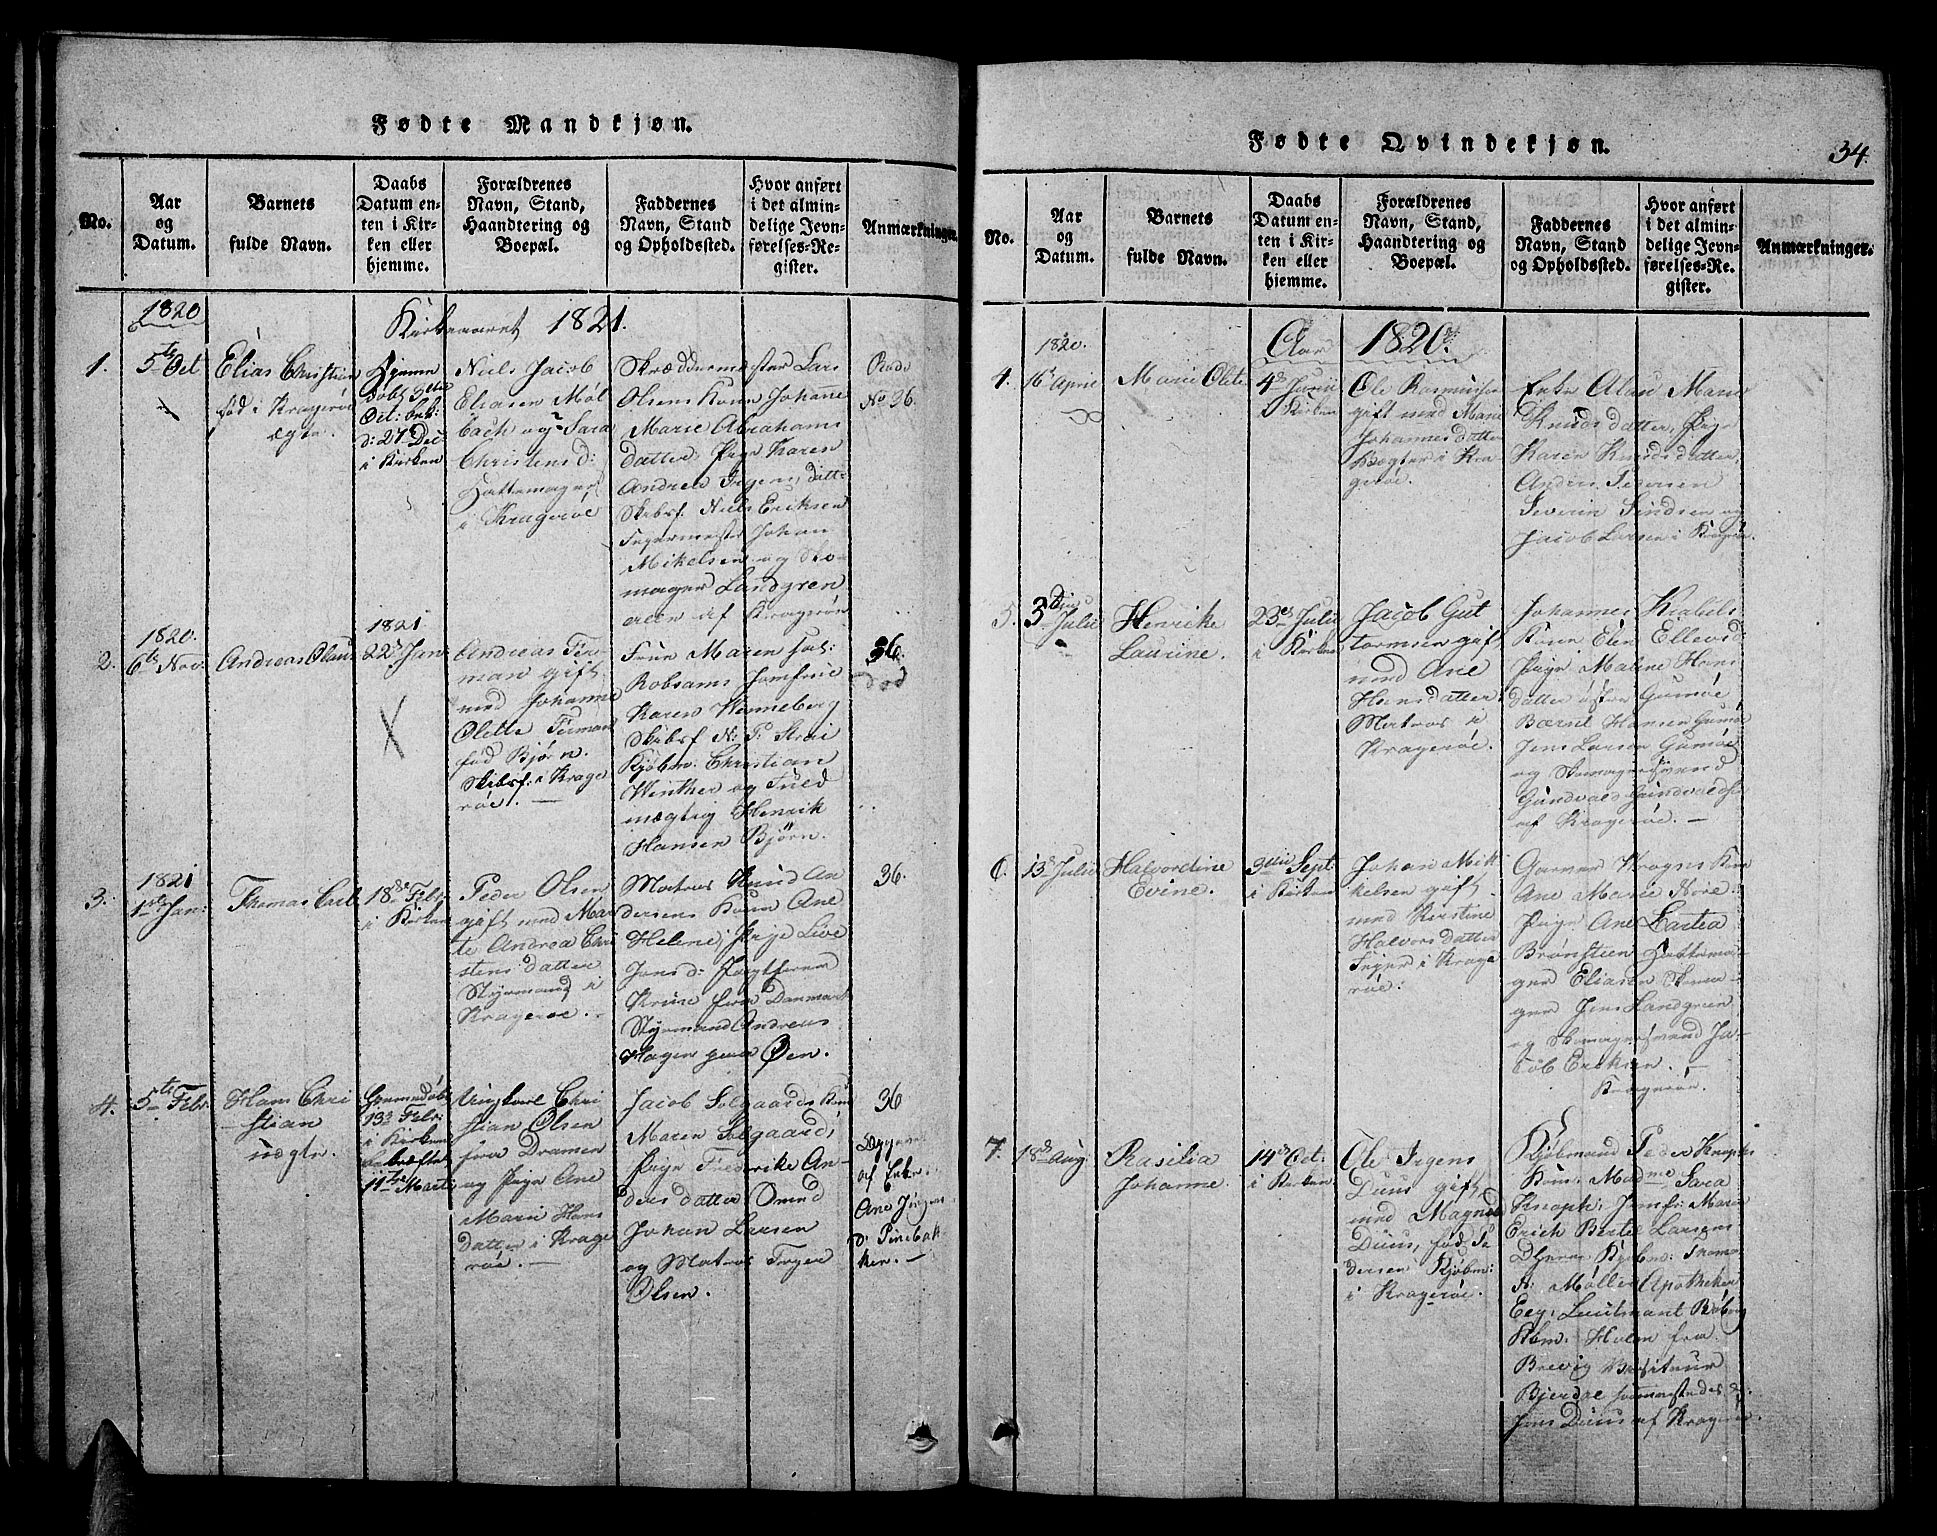 Fødte Mandkjøn.
No.
Aar
og
Datum.
Barnets
fulde Navn.
Daabs
Datum en-
ten i Kir-
ken eller
hjemme.
Forældrenes
Navn, Stand,
Haandtering og
Boepæl.
Faddernes
Navn, Stand
og Opholdssted.
Hvor anført
i det almin-
delige Jevn-
førelses-Re-
gister.
Anmærkninger.
1820
Kirkeaaret 1821.
1.
5te Oct
Elias Christian
fød i Kragerøe
ægte.
Hjemme
døbt 9de
Oct: bek:
d: 27 Dec
i Kirken
Niels Jacob
Eliasen Møl
bach og Sara
Christens d:
Hattemager
i Kragerøe
Skræddermester Lars
Olsens Kone Johanne
Marie Abrahams
datter, Pige Karen
Andrea Jrgens datt:
Skibsf. Niels Eriksen
Fegermester Johan
Mikelsen og Sko-
mager Landgren
alen af Kragerøe
No 36.
1820.
2.
6te Nov.
Andreas Olaus
1821
22de Jan
X
Andreas Fir-
man gift
med Johanne
Olette Firman
fød Bjørn.
Skibsf: i Krage
røe. —
Frue Maren sal:
Robsams Jomfrue
Karen Winneberg
Skibsf. N: P: Strai
Kjøbm: Christian
Winther og Fuld
mægtig Henrik
Hansen Bjørn.
36.
død
1821
3.
1ste Jan:
Thomas Carl
18de Febr
i Kirken
Peder Olsen
gift med Mar
te Andrea Chri
stens datter
Styrmand i
Kragerøe. —
Matros Knud An
dersens Kone Ane
Helene, Pige Live
Jens d:
Kruse fra Danmark
Styrmand Andreas
Hagen paa Øen.
36.
4.
5te Febr.
Hans Chri
stian
uægte.
Hjemmedøbt
13de Febr
i Kirken
bekræftet
11te Marts
Ungkarl Chri
stian Olsen
fra Dramen
og Pige Ane
Marie Hans
datter i Krage
røe. —
Jacob Solgaards Kone
Maren Solgaard,
Pige Frederike An-
ders datter Omud
Johan Larsen
og Matros Torger
Olsen.
36
af Enke
Ane Jørgens
d: Pinebak
ken. —
Fødte Qvindekjøn.
34
No.
Aar
og
Datum.
Barnets
fulde Navn.
Daabs
Datum en-
ten i Kir-
ken eller
hjemme.
Forældrenes
Navn, Stand,
Haandtering og
Boepæl.
Faddernes
Navn, Stand
og Opholdssted.
Hvor anført
i det almin-
delige Jevn-
førelses-Re-
gister.
Anmærkninger.
1820.
Aar
1820.
4.
16de April
Marie Olete
4de Junii
i Kirken
Ole Rasmusen
gift med Marie
Johannes datter
Bøgter i Kra
gerøe.
Enke Alau Marie
Knuds datter, Pige
Karen Knuds datter,
Anders Pedersen
Severin Sindsen og
Jacob Larsen i Kragerøe.
5.
3die Julii
Henrike
Laurine.
23de Julii
i Kirken
Jacob Gut
tormsen gift
med Ane
Hans datter
Matros i
Kragerøe.
Johannes Krabels
Kone Elen Ellevsd
Pige Maline Hans
datter østen Gumøe
Hansen Gumøe
Jens Larsen Gumøe
og Skomagersvend
Gundvald Gundvalds:
af Kragerøe. —
6.
13de Julii
Halvordine
Evine.
3die Sept:
i Kirken
Johan Mik
kelsen gift
med Kirstine
Halvors datter
Feger i Krage
røe:
Garmer Krogns Kone
Ane Marie Moe
Pige Ane Lartea
Brønsteen Hattema-
ger Eliasen Skoma-
ger Jens Landgreen
og Skomagersvend Ja-
cob Eriksen. —
Kragerøe.
7.
18de Aug
Rasilia
Johanne.
14de Oct:
i Kirken
Ole Jrgens
Duus gift
med Magnil
Duus, fød Pe
dersen Kjøbm:
i Kragerøe.
Kjøbmand Peder Knophs
Kone: Madme Sara
Knoph; Jomfr: Maren
Erich Bertel Larsens
Kjøbm: Thomas
A: Møller Apotheker
Eeg, Leutnant
Kbm. Holm fra
Brevig
Bjerdal
Jens Duus af Kragerøe.